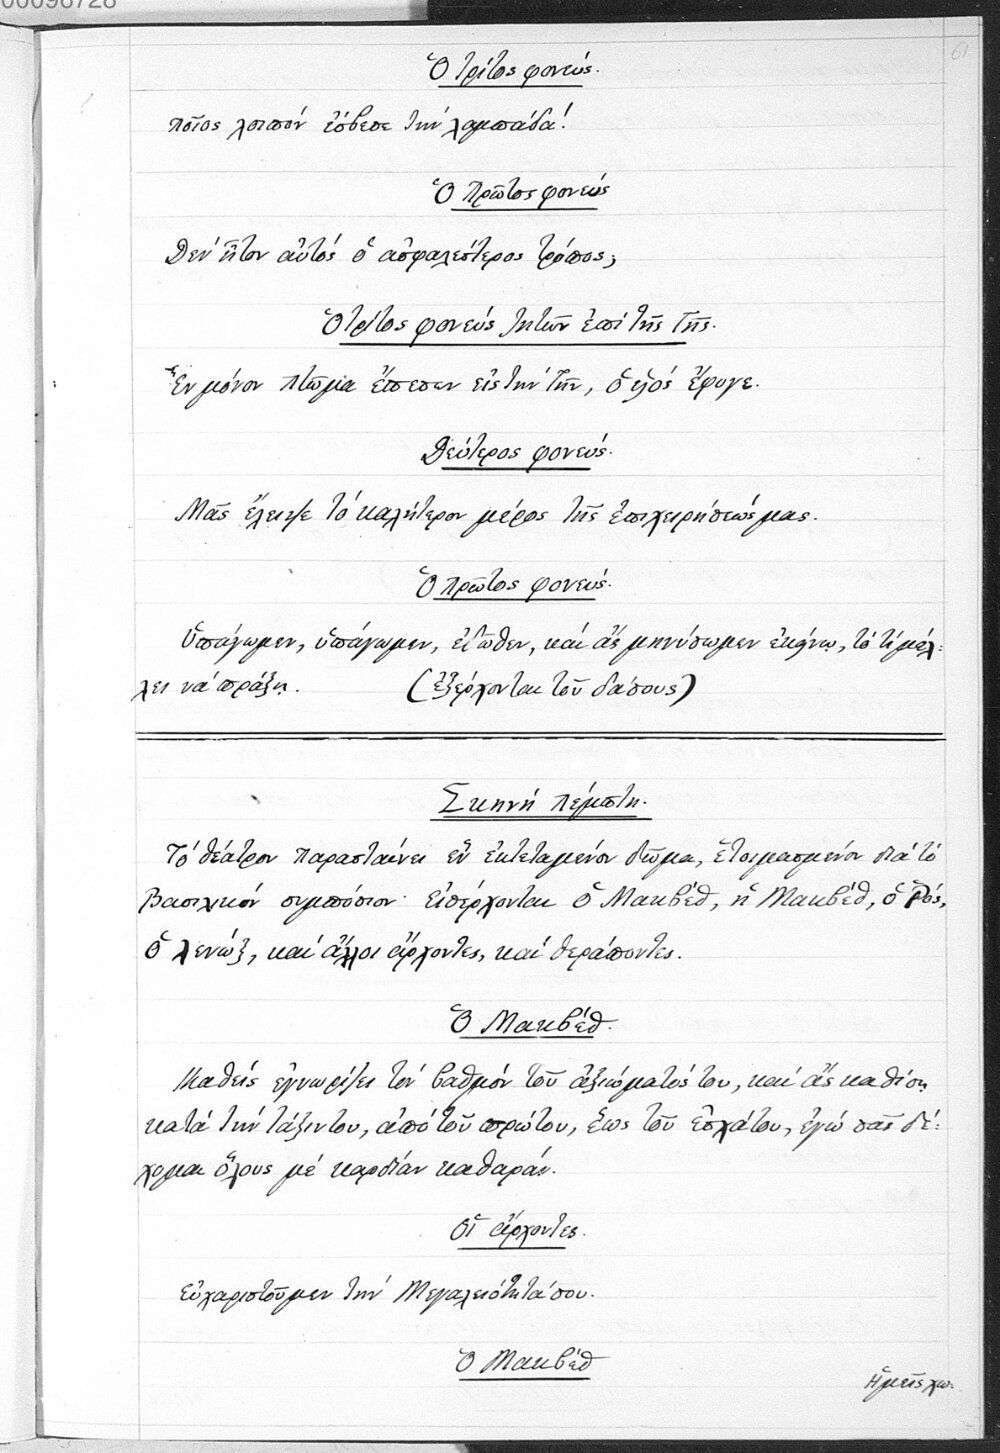 00096728
61
Ὁ τρίτος φονεύς.
Ποῖος λοιπόν ἔσβεσε τήν λαμπάδα!
Ὁ πρῶτος φονεύς
Δέν ἦτον αὐτός ὁ ἀσφαλέστερος τρόπος;
Ὁ τρίτος φονεύς ζητῶν ἐπί τῆς γῆς.
Ἕν μόνον πτῶμα ἔπεσεν εἰς τήν γῆν, ὁ υἱός ἔφυγε.
Δεύτερος φονεύς.
Μᾶς ἔλειψε τό καλήτερον μέρος τῆς ἐπιχειρήσεώς μας.
Ὁ πρῶτος φονεύς.
Ὑπάγωμεν, ὑπάγωμεν, εἰδῶθεν, καί ἄς μηνύσωμεν ἐκείνῳ, τό τί μέλ:
λει νά πράξῃ. (ἐξέρχονται τοῦ δάσους)
Σκηνή πέμπτη.
Τό θέατρον παρασταίνει ἕν ἐκτεταμένον δῶμα, ἑτοιμασμένον διά τό
Βασιλικόν συμπόσιον· εἰσέρχονται ὁ Μακβέθ, ἡ Μακβέθ, ὁ Ῥός,
ὁ Λενώξ, καί ἄλλοι ἄρχοντες, καί θεράποντες.
Ὁ Μακβέθ.
Καθείς ἐγνωρίζει τόν βαθμόν τοῦ ἀξιώματός του, καί ἄς καθίσῃ
κατά τήν τάξιν του, ἀπό τοῦ πρώτου, ἕως τοῦ ἐσχάτου, ἐγώ σᾶς δέ:
χομαι ὅλους μέ καρδίαν καθαράν.
Οἱ ἄρχοντες.
Εὐχαριστοῦμεν τήν Μεγαλειότητά σου.
Ὁ Μακβέθ
Ἡμεῖς χω: